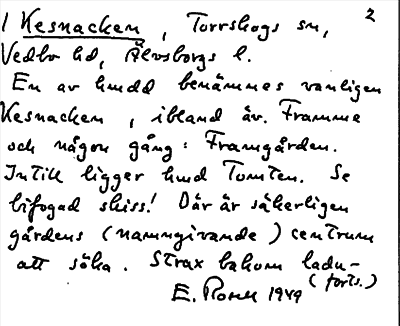 2
1 Kesnacken, Torrskogs sn,
Vedbo hd, Älvsborgs l.
En av hmdd benämnes vanligen
Kesnacken, ibland äv. Framme
och någon gång: Framgården.
Intill ligger hmd Tomten. Se
bifogad skiss! Där är säkerligen
gårdens (namngivande) centrum
att söka. Strax bakom ladu-
(forts.)
E. Rosell 1949